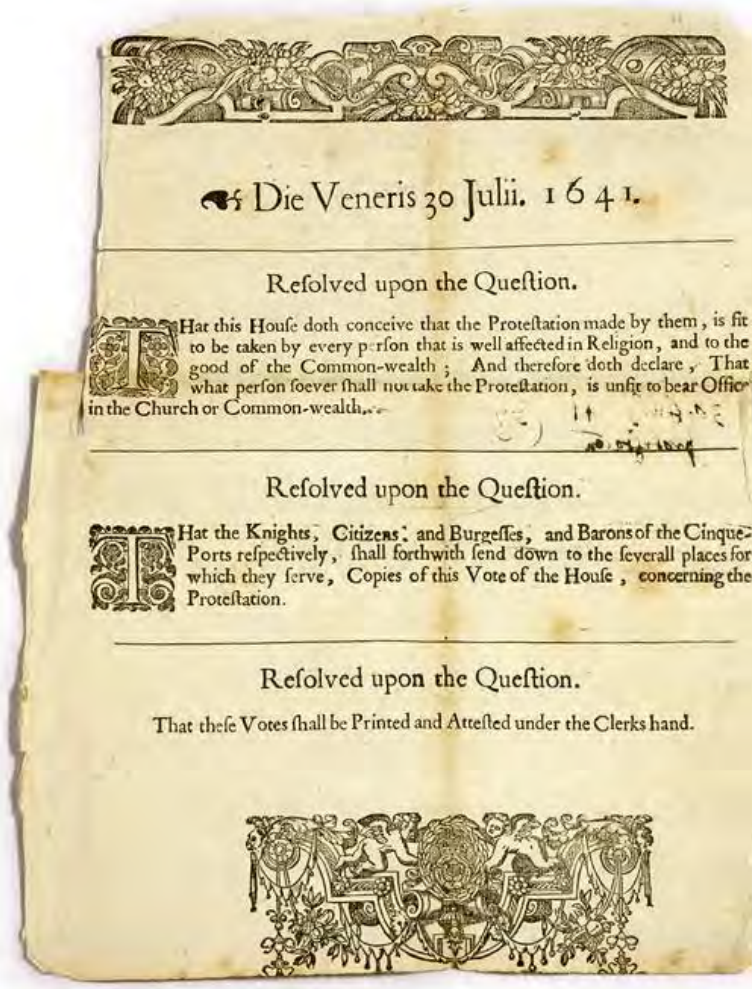 Die Veneris 30 Julii. 1641.
Reſolved upon the Queſtion.
THat this Houſe doth conceive that the Proteſtation made by them, is fit
to be taken by every perſon that is well affected in Religion, and to the
good of the Common-wealth; And therefore doth declare, That
what perſon ſoever ſhall not take the Proteſtation, is unfit to bear Office
in the Church or Common-wealth.
Reſolved upon the Queſtion.
THat the Knights, Citizens, and Burgeſſes, and Barons of the Cinque-
Ports reſpectively, ſhall forthwith ſend down to the ſeverall places for
which they ſerve, Copies of this Vote of the Houſe, concerning the
Proteſtation.
Reſolved upon the Queſtion.
That theſe Votes ſhall be Printed and Atteſted under the Clerks hand.